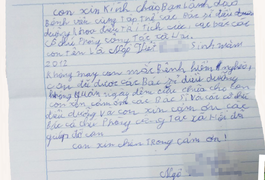 con xin Kính chào Ban Lãnh đạo
Bệnh viện cùng tập thể các Bác sĩ điều
dưỡng khoa Hồi Tích cực, các bác các
cô chú Phòng công Tác xã Hội.
con tên là Ngô Thế Sinh năm
2011
Không may con mắc Bệnh hiểm nghèo,
con được các Bác sĩ điều dưỡng
trong quản ngày đêm cứu chữa cho con
con xin cảm ơn các Bác sĩ và các cô điều
dưỡng và con xin cảm ơn các
bác cô chú Phòng công Tác xã Hội đã
giúp đỡ con
con xin chân Trọng cảm ơn!
Ngô